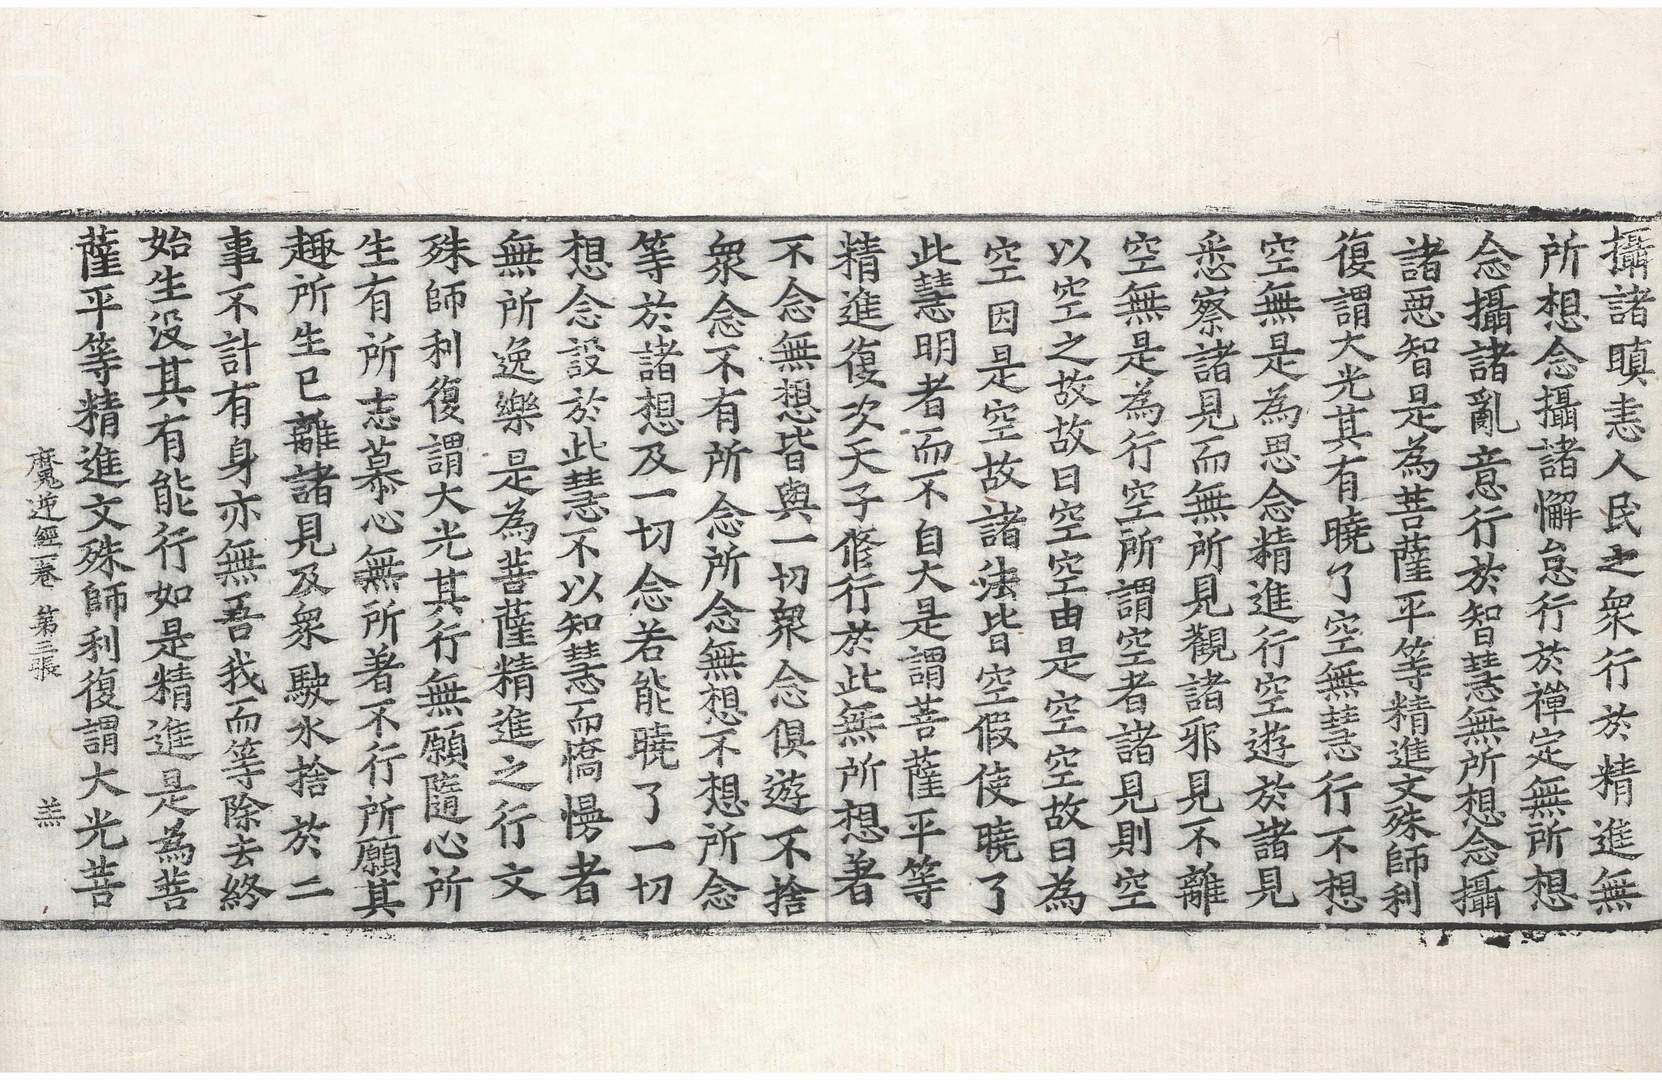 攝諸瞋恚人民之衆行於精進無
所想念攝諸懈怠行於禪定無所想
念攝諸亂意行於智慧無所想念攝
諸惡智是為菩薩平等精進文殊師利
復謂大光其有曉了空無慧行不想
空無是為思念精進行空遊於諸見
悉察諸見而無所見觀諸邪見不離
空無是為行空所謂空者諸見則空
以空之故故曰空空由是空空故曰為
空因是空故諸法皆空假使曉了
此慧明者而不自大是謂菩薩平等
精進復次天子修行於此無所想著
不念無想皆與一切衆念俱遊不捨
衆念不有所念所念無想不想所念
等於諸想及一切念若能曉了一切
想念設於此慧不以知慧而憍慢者
無所逸樂是為菩薩精進之行文
殊師利復謂大光其行無願隨心所
生有所志慕心無所著不行所願其
趣所生已離諸見及衆駛水捨於二
事不計有身亦無吾我而等除去終
始生没其有能行如是精進是為菩
薩平等精進文殊師利復謂大光菩
魔逆經一卷 第三張 羔